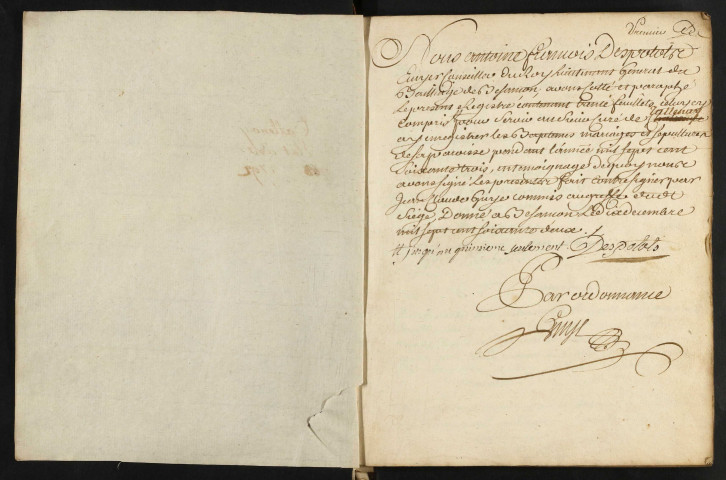 premier
Nous antoine francois Despotots
Ecuyer Conseiller du Roy lieutenant General du
Bailliage de Besancon, avons cotté et paraphé
le present Registre contenant trente feuillets celuy cy
compris pour servir au Sieur curé de
a y enregistrer les Baptemes mariages et sepultures
de sa paroisse pendant l'année mil sept cent
soixante trois, en temoignage de quoy nous
avons signé les presentes fait contresigner par
Jean claude commis au greffe dudit
Siege, Donné a Besancon le decembre
mil sept cent soixante deux ./.
jusqu'au quinzieme seulement Despotots
Par ordonnance